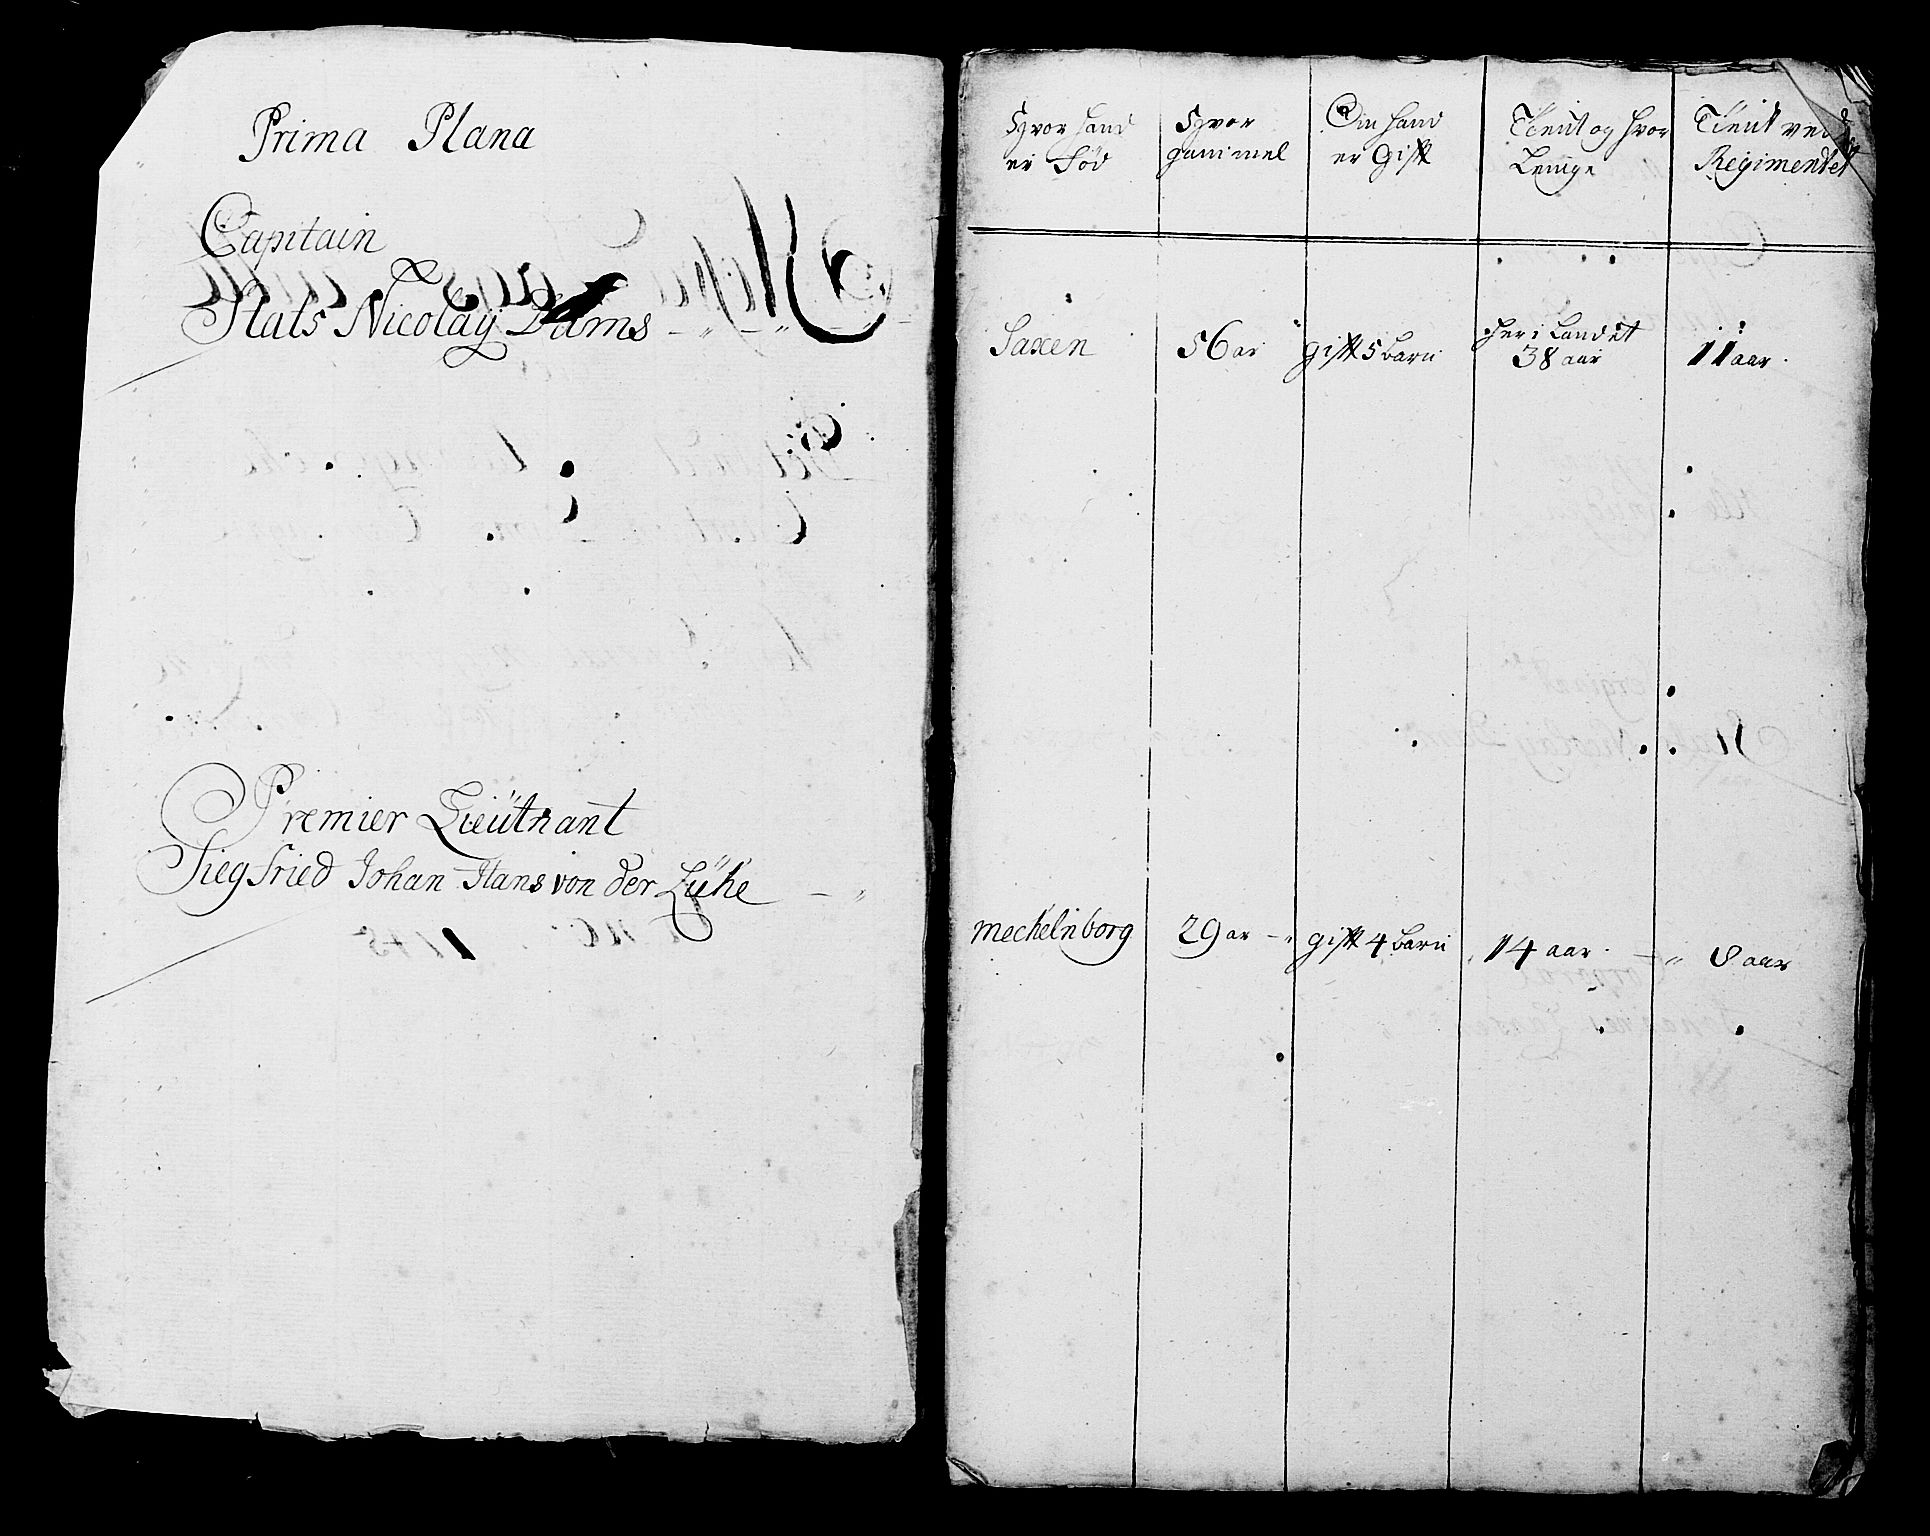 Prima Plana
Capitain
Hals Nicolaÿ Dams
Premier Lieütnant
Siegfried Johan Hans von der Lühe
Hvor hand er Fød
Hvor gammel
Om hand er Gift
Tient og hvor Lenge
Tient ved Regimentet
Saxen 56 ar gift 5 barn her i Landet 38 aar 11 aar
Mechelnborg 29 ar gift 4 barn 14 aar 8 aar